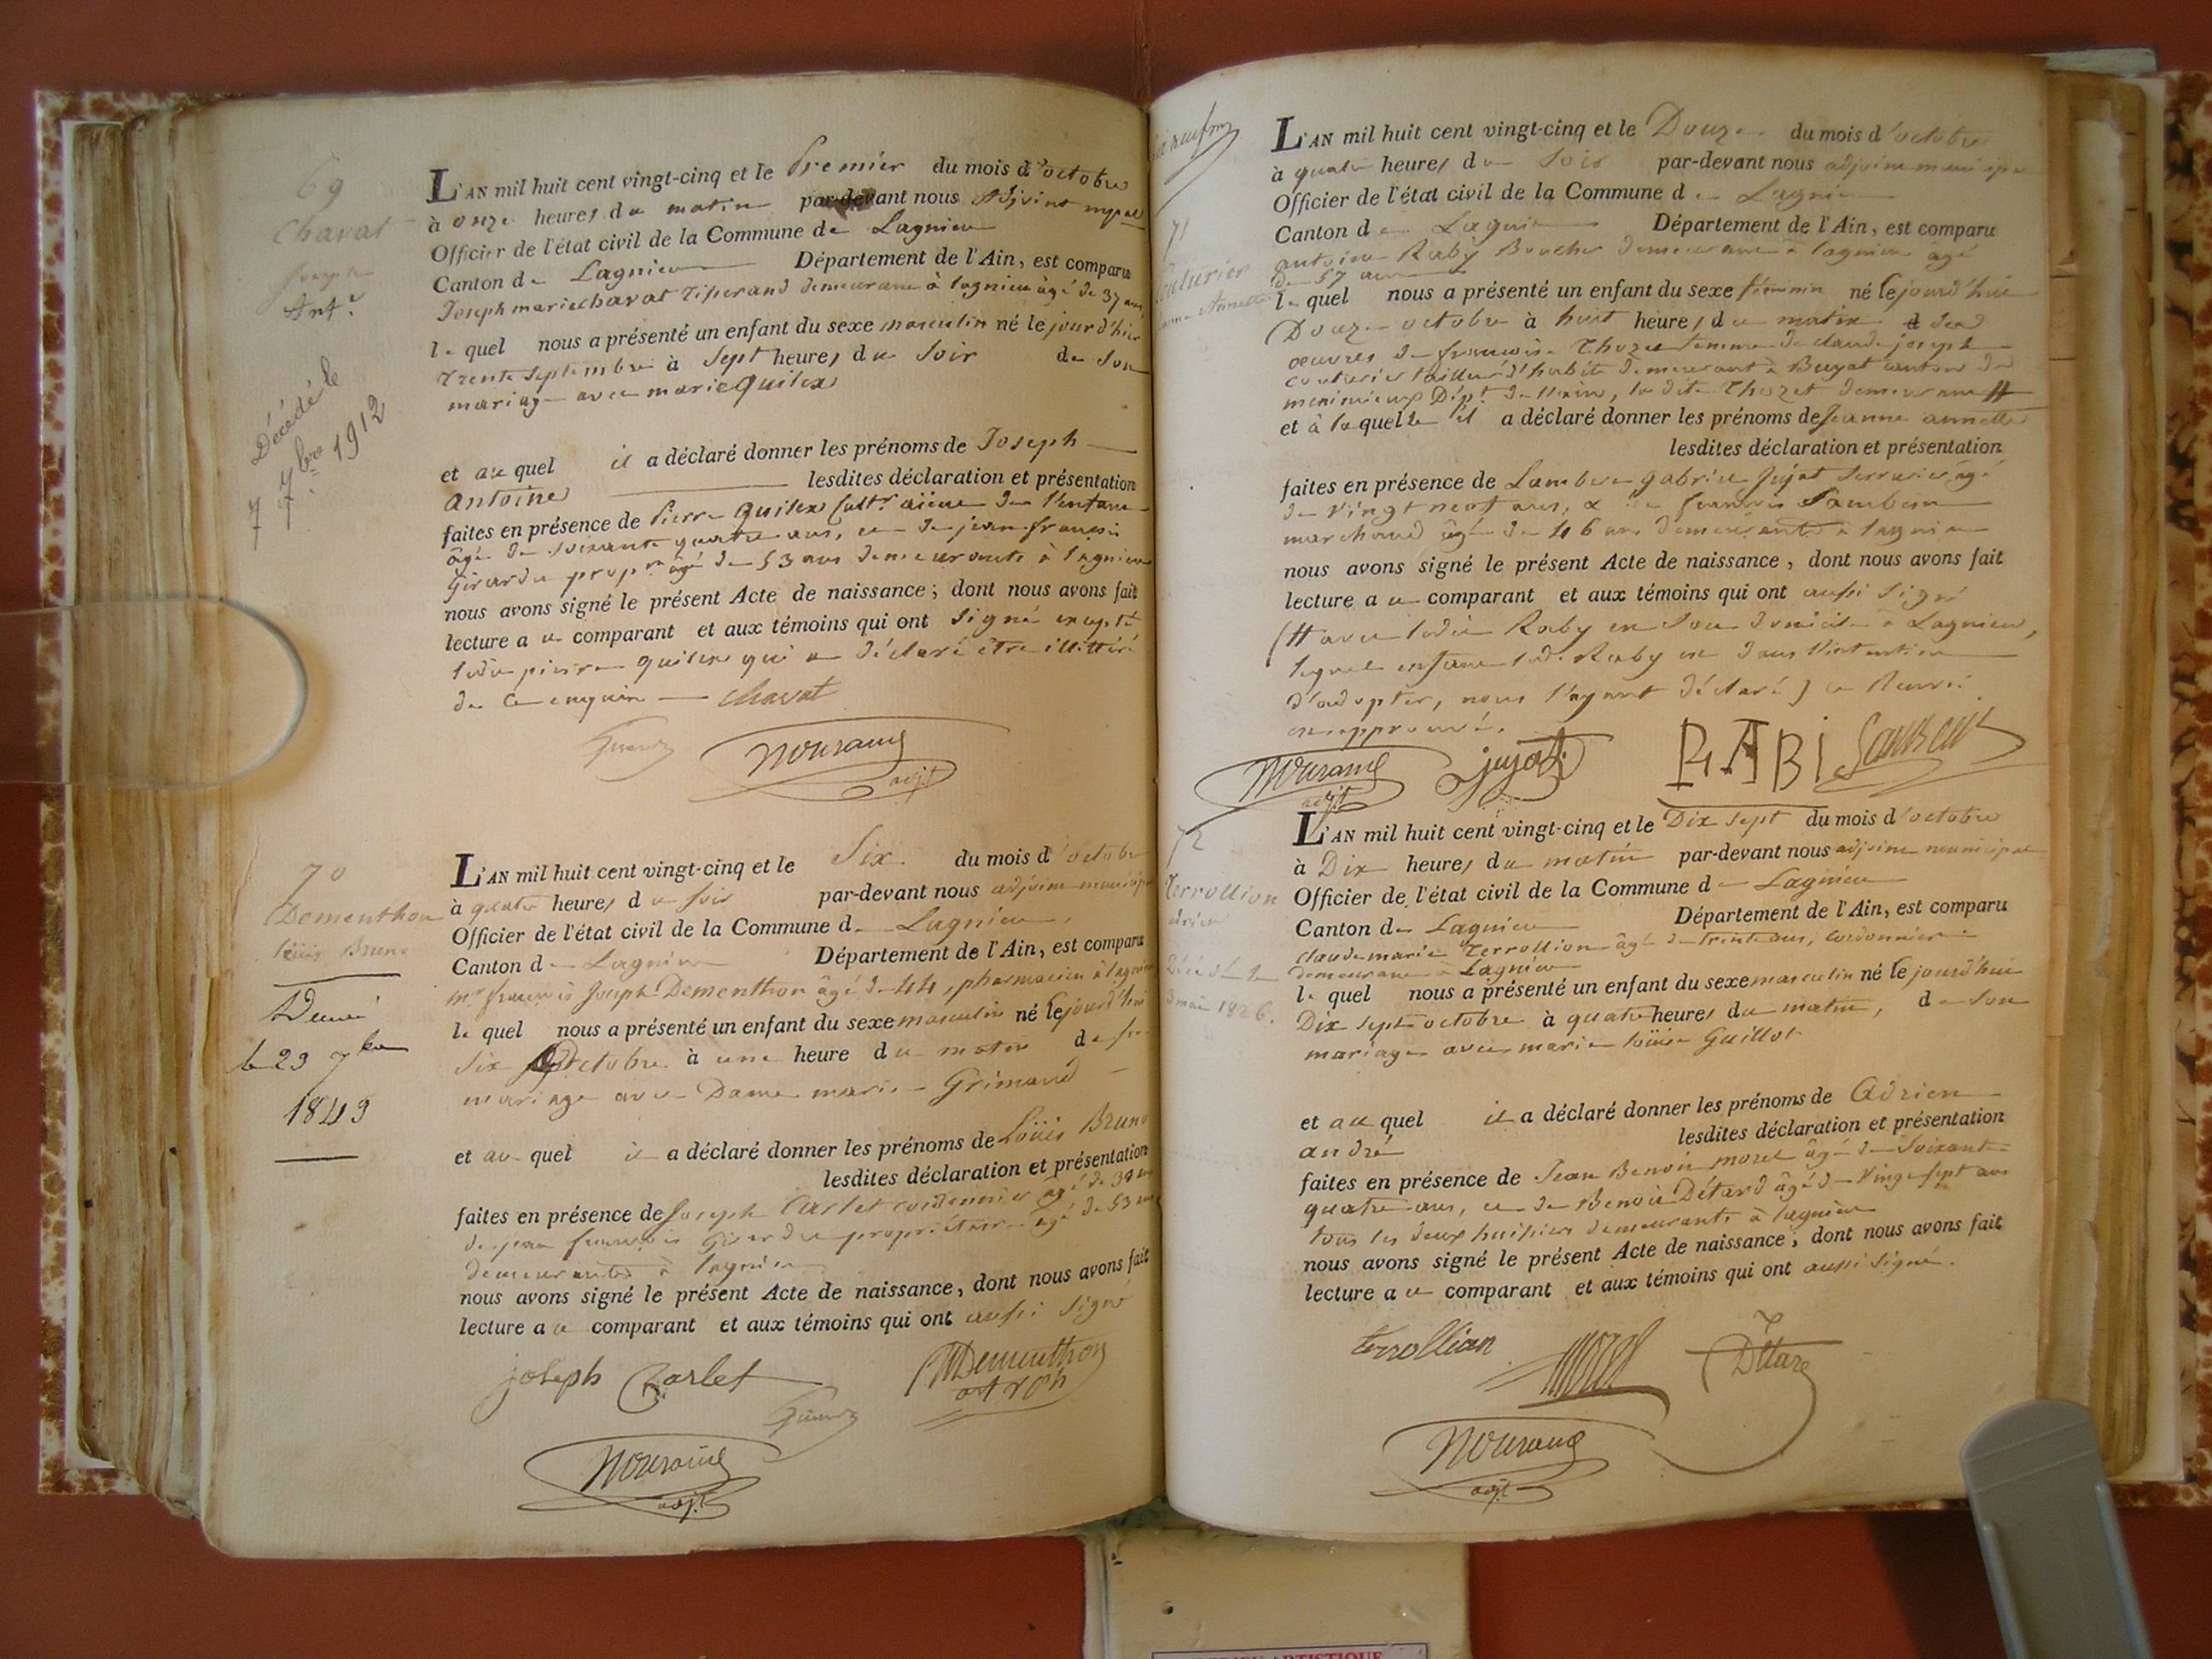 69
Chavat
Joseph
Ant.e
Décédé le
7 7bre 1912
L'AN mil huit cent vingt-cinq et le Premier du mois d'octobre
à onze heures du matin par-devant nous Adjoint mpal
Officier de l'état civil de la Commune de Lagnieu
Canton de Lagnieu Département de l'Ain, est comparu
Joseph marie chavat tisserand demeurant à lagnieu âgé de 37 ans
le quel nous a présenté un enfant du sexe masculin né le jourd'hier
trente Septembre à Sept heures du Soir de Son
mariage avec marie quilex
et au quel il a déclaré donner les prénoms de Joseph
antoine lesdites déclaration et présentation
faites en présence de Pierre quilex cultr aïeul de l'enfant
âgé de soixante quatre ans, et de jean françois
Girardu propre âgé de 53 ans demeurants à lagnieu
nous avons signé le présent Acte de naissance ; dont nous avons fait
lecture au comparant et aux témoins qui ont signé excepté
ledit pierre quilex qui a déclaré être illittéré
de ce enquis chavat
nourand
adjt
70
Dementhon
loüis Bruno
Décédé
le 29 7bre
1849
L'AN mil huit cent vingt-cinq et le Six du mois d'octobre
à quatre heures du soir par-devant nous adjoint municipal
Officier de l'état civil de la Commune de Lagnieu
Canton de Lagnieu Département de l'Ain, est comparu
mr françois Joseph Dementhon âgé de 44, pharmacien à lagnieu
le quel nous a présenté un enfant du sexe masculin né le jourd'hui
Six octobre à une heure du matin de son
mariage avec Dame marie Grimaud
et au quel il a déclaré donner les prénoms de Loüis Bruno
lesdites déclaration et présentation
faites en présence de Joseph Carlet cordonnier âgé de 38 ans
de jean françois Girardu propriétaire âgé de 53 ans
demeurants à lagnieu
nous avons signé le présent Acte de naissance, dont nous avons fait
lecture au comparant et aux témoins qui ont aussi signé
joseph Carlet Dementhon
nourand
adjt
71
Couturier
jeanne Annette
L'AN mil huit cent vingt-cinq et le Douze du mois d'octobre
à quatre heures du Soir par-devant nous adjoint municipal
Officier de l'état civil de la Commune de Lagnieu
Canton de Lagnieu Département de l'Ain, est comparu
antoine Raby Boucher demeurant à lagnieu âgé
de 57 ans
le quel nous a présenté un enfant du sexe féminin né le jourd'hui
Douze octobre à huit heures du matin des
oeuvres de françoise Thozet femme de claude joseph
couturier tailleur d'habits demeurant à Buyat canton de
meximieux Dépt. de l'ain, la dite Thozet demeurant #
et à laquelle il a déclaré donner les prénoms de Jeanne annette
lesdites déclaration et présentation
faites en présence de Lambert gabriel Jujat Serrurier âgé
de vingt neuf ans, & de françois Sambein
marchand âgé de 46 ans demeurants à lagnieu
nous avons signé le présent Acte de naissance , dont nous avons fait
lecture au comparant et aux témoins qui ont aussi Signé
(# avec ledit Raby en Son domicile à Lagnieu,
lequel enfant led. Raby est dans l'intention
d'adopter, nous l'ayant déclaré) ce Renvoi
est approuvé.
nourand jujat RABI Sambein
adjt
72
Terrollion
adrien
Décédé le
3 mai 1826.
L'AN mil huit cent vingt-cinq et le Dix Sept du mois d'octobre
à Dix heures du matin par-devant nous adjoint municipal
Officier de l'état civil de la Commune de Lagnieu
Canton de Lagnieu Département de l'Ain, est comparu
claude marie Terrollion âgé de trente ans, cordonnier
demeurant à Lagnieu
le quel nous a présenté un enfant du sexe masculin né le jourd'hui
Dix Sept octobre à quatre heures du matin, de Son
mariage avec marie loüise Guillot
et au quel il a déclaré donner les prénoms de Adrien
andré lesdites déclaration et présentation
faites en présence de Jean Benoit morel âgé de Soixante
quatre ans, et de Benoit Détard âgé de Vingt sept ans
tous les deux huissiers demeurants à lagnieu
nous avons signé le présent Acte de naissance ; dont nous avons fait
lecture au comparant et aux témoins qui ont aussi signé.
terrollian morel Détard
nourand
adjt